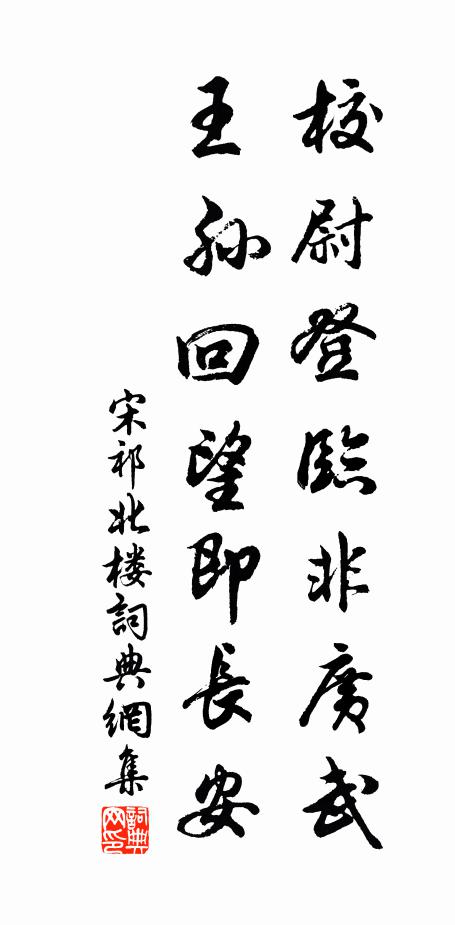 校尉登臨非廣武
王孙回望即長安
宋祁北楼詞典網集
詞典网印